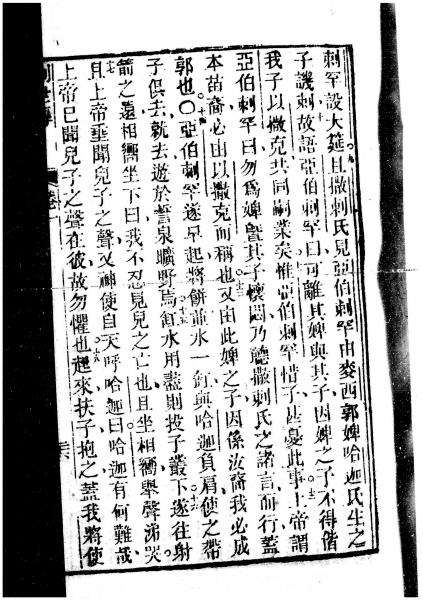 剌罕設大筵且撒剌氏見亞伯剌罕由麥西郭婢哈迦氏生之
子譏刺故語亞伯剌罕曰可離其婢與其子因婢之子不得偕
我子以撒克共同嗣業矣惟亞伯剌罕惜子甚憂此事上帝謂
亞伯剌罕曰勿爲婢暨其子懷悶乃聽撒剌氏之諸言而行蓋
本苗裔必由以撒克而稱也又由此婢之子因係汝裔我必成
郭也〇亞伯剌罕遂早起將餅並水一缸與哈迦負肩使之帶
子俱去就去遊於誓泉曠野焉缸水用盡則投子叢下遂往射
箭之遠相嚮坐下曰我不忍見兒之亡也且坐相嚮舉聲涕哭
且上帝垂聞兒子之聲又神使自天呼哈迦曰哈迦有何難哉
上帝已聞兒子之聲在彼故勿懼也起來扶子抱之蓋我將使
創世傳 卷一